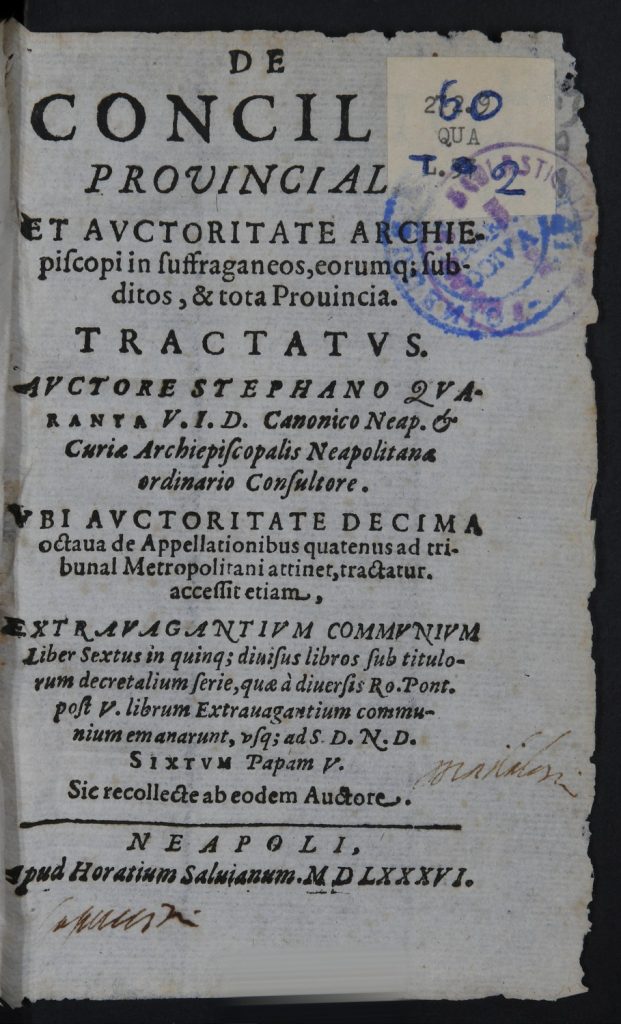 DE
CONCIL
PROVINCIAL
ET AVCTORITATE ARCHIE-
piſcopi in ſuffraganeos, eorumq; ſub-
ditos, & tota Prouincia.
TRACTATVS.
AVCTORE STEPHANO QVA-
RANTA V. I. D. Canonico Neap. &
Curiæ Archiepiſcopalis Neapolitanæ
ordinario Conſultore.
VBI AVCTORITATE DECIMA
octaua de Appellationibus quatenus ad tri-
bunal Metropolitani attinet, tractatur.
acceſſit etiam,
EXTRAVAGANTIVM COMMVNIVM
Liber Sextus in quinq; diuiſus libros ſub titulo-
rum decretalium ſerie, quæ à diuerſis Ro. Pont.
poſt V. librum Extrauagantium commu-
nium emanarunt, vſq; ad S. D. N. D.
SIXTVM Papam V.
Sic recollecte ab eodem Auctore.
NEAPOLI,
Apud Horatium Saluianum. M D LXXXVI.
60
QUA
L.
2